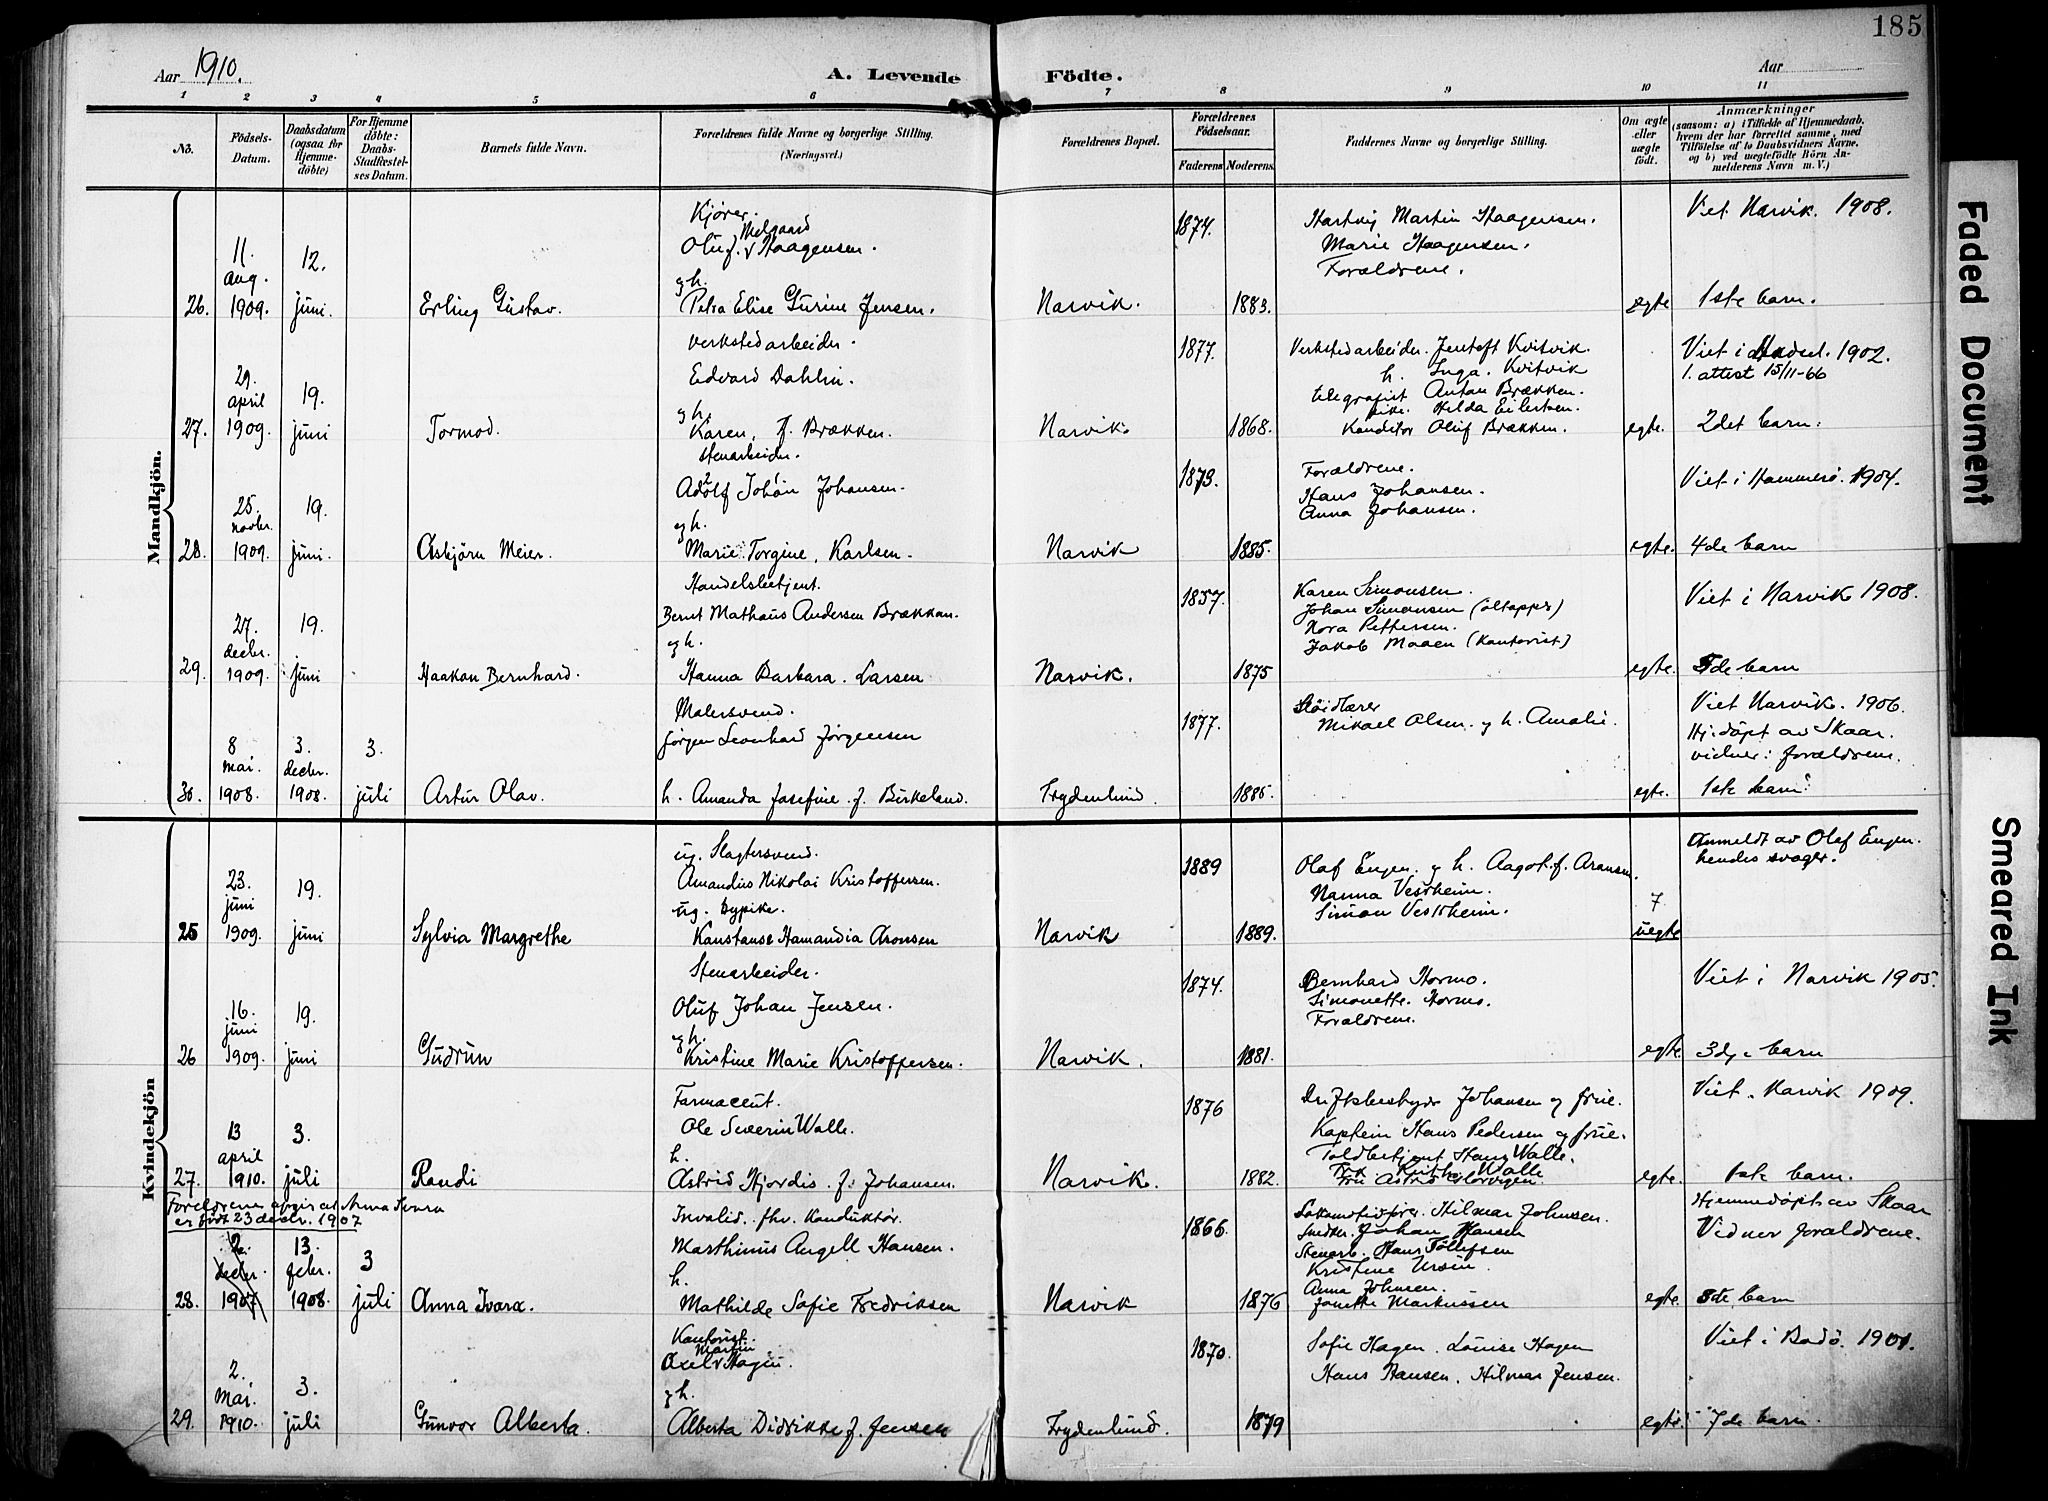 185
Aar 1910.
A. Levende Födte.
Aar
1 2 3 4 5 6 7 8 9 10 11
No.
Födsels-Datum.
Daabsdatum (ogsaa for Hjemme-döbte)
For Hjemme döbte: Daabs-Stadfæstel-ses Datum.
Barnets fulde Navn.
Forældrenes fulde Navne og borgerlige Stilling.
(Næringsvei.)
Forældrenes Bopæl.
Forældrenes Födselsaar.
Faderens Moderens
Faddernes Navne og borgerlige Stilling.
Om ægte eller uægte födt.
Anmærkninger
(saasom: a) i Tilfælde af Hjemmedaab, hvem der har forrettet samme, med Tilföielse af to Daabsvidners Navne, og b) ved uegtefödte Börn An-melderens Navn m. V.)
Mandkjön.
26. 11. aug. 1909.
12. juni.
Erling Gustav.
Kjører.
Oluf Melgaard Haagensen.
og h.
Petra Elise Gurine Jensen.
Narvik.
1874.
1883.
Hartvig Martin Haagensen.
Marie Haagensen.
Forældrene.
ægte
Viet Narvik. 1908.
1ste barn.
27. 29. april 1909.
19. juni
Tormod.
Verkstedarbeider.
Edvard Dahlin.
og h.
Karen, f. Brækken.
Narvik.
1877.
1868.
Verkstedarbeider. Jentoft Kvitvik.
h. Inga. Kvitvik
telegrafist Anton Brækken.
pike. Hilda Eilertsen.
Konditor Oluf Brækken.
egte.
Viet i Hadsel. 1902.
l. attest 15/11-66
2det barn.
28. 25. novbr. 1909.
19. juni.
Asbjörn Meier.
Stenarbeider.
Adolf Johan Johansen.
og h.
Marie Torgine, Karlsen.
Narvik
1873.
1885.
Forældrene.
Hans Johansen.
Anna Johansen.
egte.
Viet i Hammerö. 1904.
4de barn
29. 27. decbr. 1909.
19. juni
Haakon Bernhard.
Handelsbetjent.
Bernt Mathæus Andersen Brækkan.
og h.
Hanna Barbara. Larsen
Narvik.
1857.
1875
Karen Simonsen.
Johan Simonsen (öltapper)
Nora Pettersen.
Jakob Moaen (Kontorist)
egte.
Viet i Narvik 1908.
5de barn
30. 8 mai. 1908.
3. decbr. 1908.
3. juli
Artur Olav.
Malersvend.
Jörgen Leonhard Jörgensen
h. Amanda Josefine. f. Birkeland.
Frydenlund.
1877.
1885.
Slöidlærer
Mikael Olsen. og h. Amalie.
egte.
Viet Narvik. 1906.
Hj.döpt av Skaar.
vidner: forældrene.
1ste barn
Kvindekjön
25 23. juni 1909.
19. juni
Sylvia Margrethe
ug. Slagtersvend.
Amandus Nikolai Kristoffersen.
ug. bypike.
Konstanse Hamandia Aronsen
Narvik
1889
1889.
Olaf Engen. og h. Aagot. f. Aronsen.
Nanna Vestheim.
Simon Vestheim.
7
uegte
Anmeldt av Olaf Engen.
hendes svoger.
26 16. juni 1909.
19. juni
Gudrun
Stenarbeider.
Oluf Johan Jensen.
og h.
Kristine Marie Kristoffersen.
Narvik.
1874.
1881.
Bernhard Hormo.
Simonette. Hormo.
Forældrene.
egte
Viet i Narvik 1905.
3dje barn
27. 13 april 1910.
3. juli
Randi
Farmaceut.
Ole Severin Walle.
h.
Astrid Hjordis. f. Johansen.
Narvik.
1876
1882.
Driftsbestyrer Johansen og frue.
Kaptein Hans Pedersen og frue.
Toldbetjent Hans Walle.
Frk. Ruth Walle
Fru Astrid
egte.
Viet. Narvik 1909.
1ste barn.
Foreldrene opgir at Anna Ivara
er födt 23 decbr. 1907
28. 2. decbr. 1907
13. febr. 1908.
3 juli
Anna Ivara.
Invalid. fhv. Konduktör.
Marthinus Angell Hansen.
h.
Mathilde Sofie Fredriksen
Narvik
1866.
1876
Lokomotivförer. Hilmar Johnsen.
Snedker. Johan Hansen
Stenarb. Hans Tollefsen
Kristine Ursin.
Anna Johnsen.
Janette Markussen
egte.
Hjemmedöpt av Skaar
Vidner forældrene.
8de barn
29. 2. Mai. 1910.
3. juli
Gunvor Alberta.
Kontorist.
Axel Martin Hagen.
og h.
Alberta Didrikke f. Jensen
Frydenlund.
1870.
1879
Sofie Hagen. Louise Hagen
Hans Hansen. Hilmar Jensen.
egte.
Viet i Bodö. 1901.
7de barn.
Faded Document
Smeared Ink